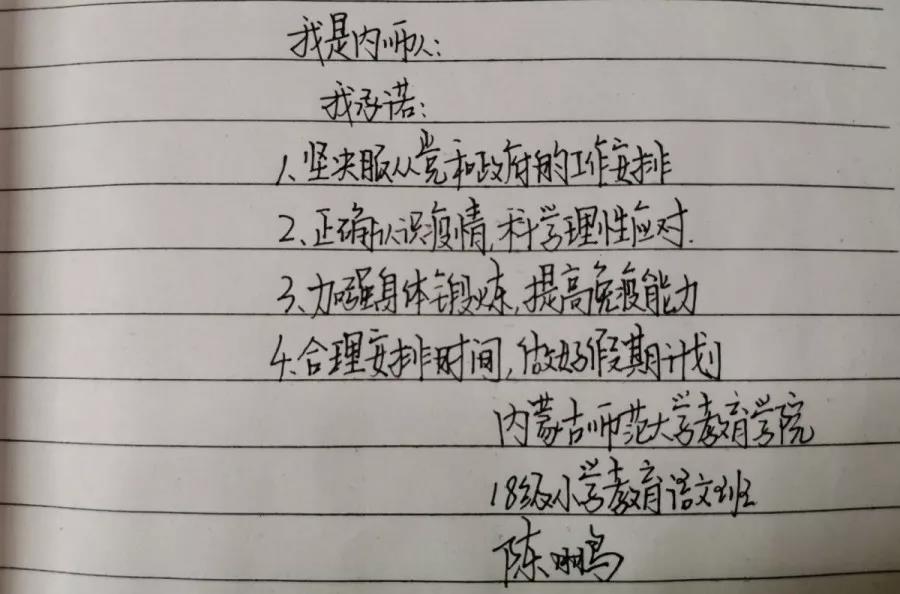 我是内师人:
我承诺:
1、坚决服从党和政府的工作安排
2、正确认识疫情,科学理性应对.
3、加强身体锻炼,提高免疫能力
4.合理安排时间,做好假期计划
内蒙古师范大学教育学院
18级小学教育语文班
陈鹏